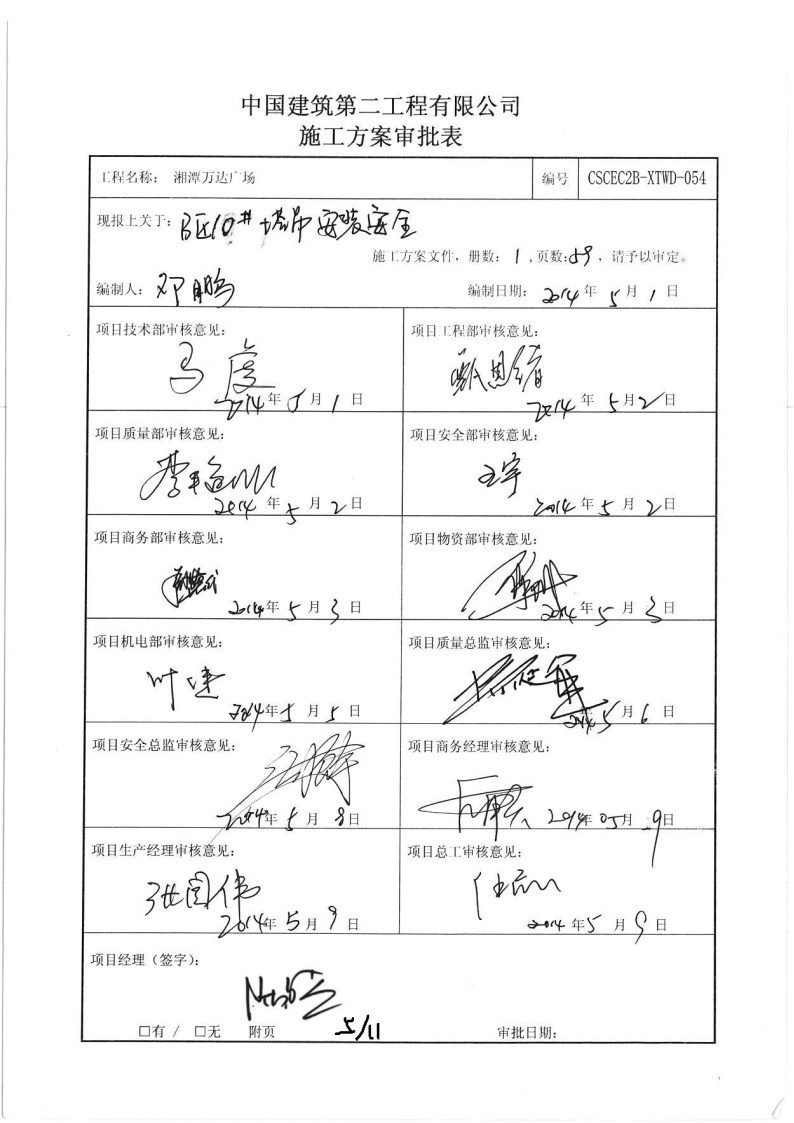 中国建筑第二工程有限公司
施工方案审批表
工程名称: 湘潭万达广场 编号 CSCEC2B-XTWD-054
现报上关于: B区10#塔吊安装安全
施工方案文件, 册数: 1 ,页数: 59 , 请予以审定。
编制人: 邓鹏 编制日期: 2014年 5月 1日
项目技术部审核意见: 项目工程部审核意见:
2014年 5月 1日 2014年 5月 2日
项目质量部审核意见: 项目安全部审核意见:
王宇
2014年 5月 2日 2014年 5月 2日
项目商务部审核意见: 项目物资部审核意见:
2014年 5月 3日 2014年 5月 3日
项目机电部审核意见: 项目质量总监审核意见:
2014年 5月 5日 2014年 5月 6日
项目安全总监审核意见: 项目商务经理审核意见:
2014年 5月 8日 2014年 05月 9日
项目生产经理审核意见: 项目总工审核意见:
张国伟
2014年 5月 9日 2014年 5月 9日
项目经理（签字）:
□有 / □无 附页 5/11 审批日期: